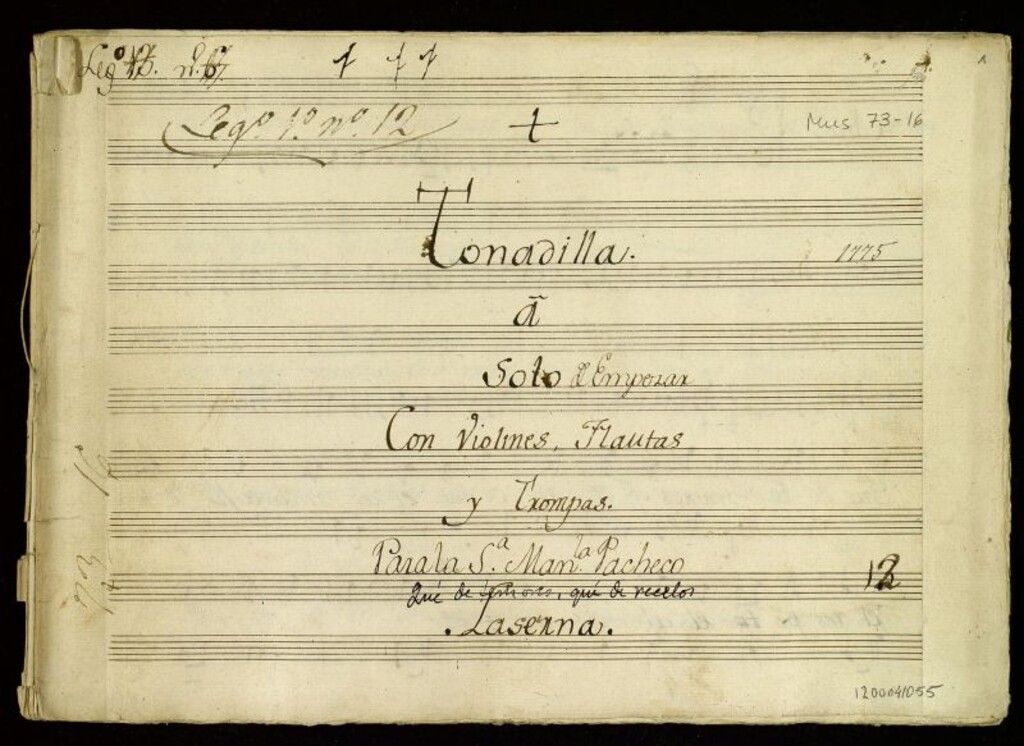 Leg.º 1.º n.º 12
Mus 73-16
Tonadilla.
1775
ã
Solo d Empezar
Con Violines, Flautas
y Trompas.
Para la S.ª Man.la Pacheco
12
Qué de temores, qué de recelos
.Laserna.
1200041055